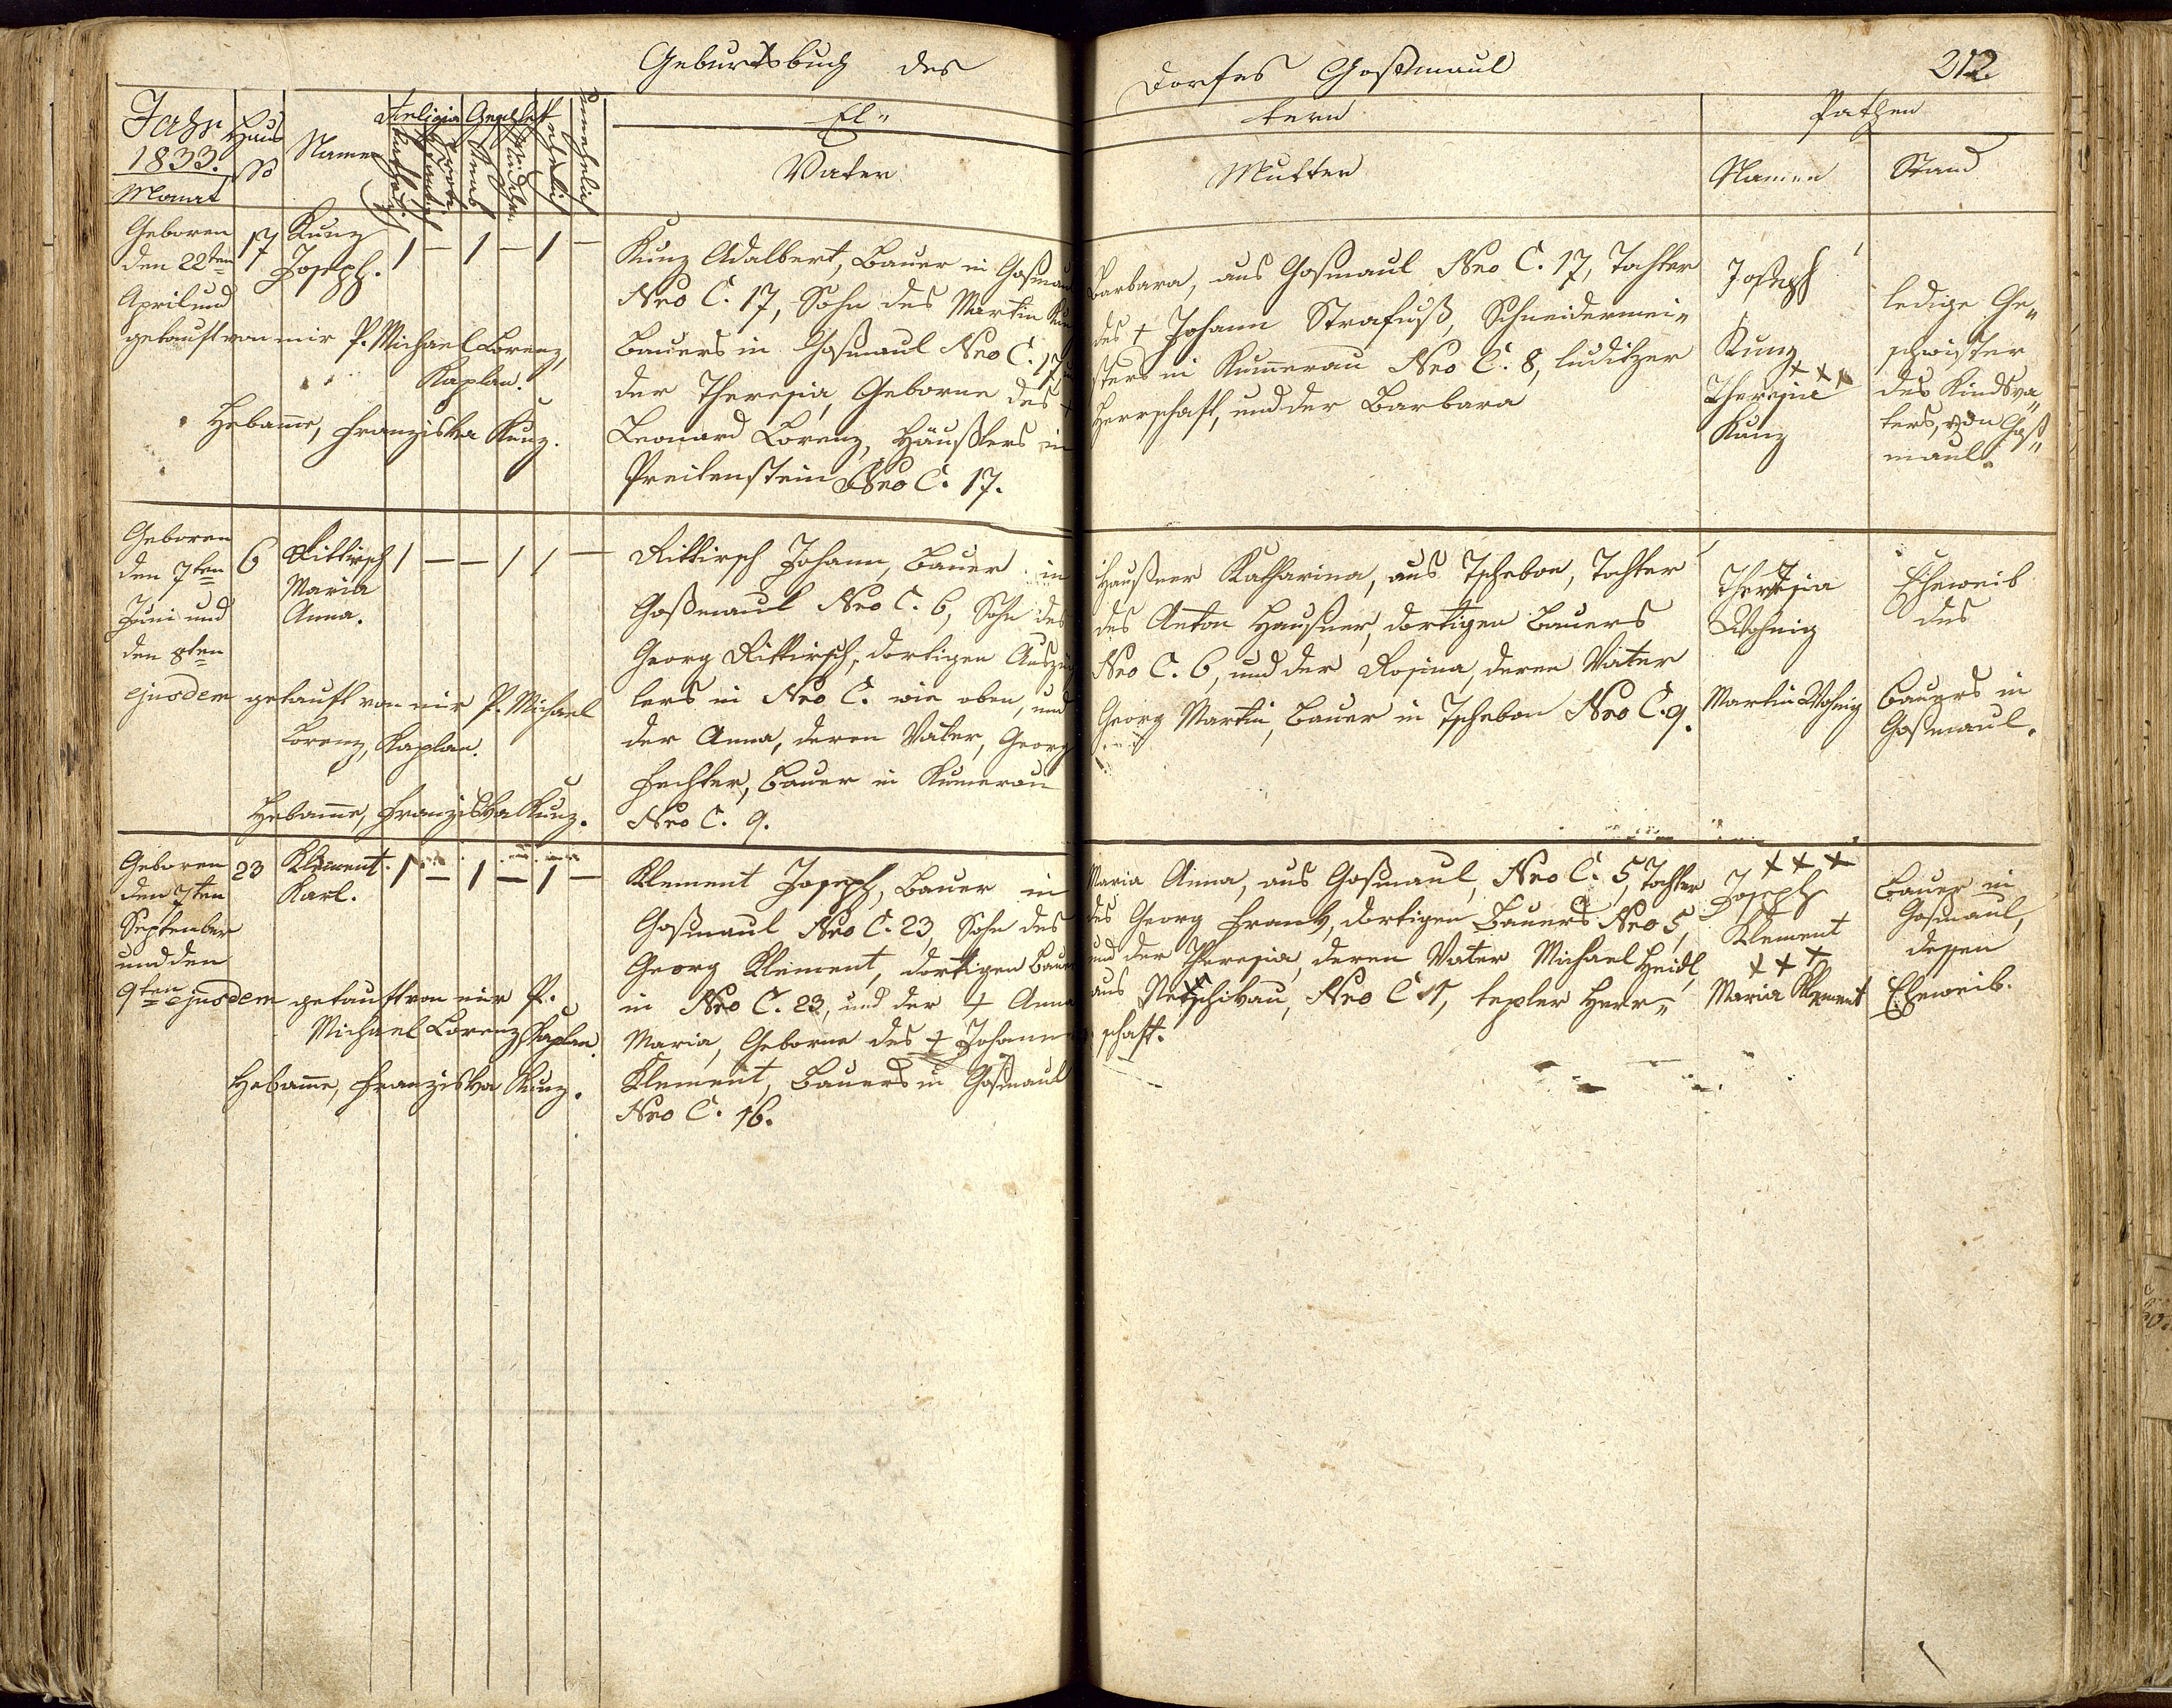 Geburtsbuch des Dorfes Goßmaul 212.
Jahr 1833. Monat
Haus No
Namen
Religion
Katholisch
Protestantisch
Geschlecht
Knab
Mädchen
ehelich
unehelich
El„tern
Vater
Mutter
Pathen
Namen
Stand
Geboren
den 22ten
April und
getauft von mir P. Michael Lorenz,
Kaplan.
Hebamme, Franziska Kunz.
17
Kunz
Joseph.
1 — 1 — 1 —
Kunz Adalbert, Bauer in Goßmaul
Nro C. 17, Sohn des Martin Kunz
Bauers in Goßmaul Nro C. 17 u
der Theresia, Geborne des +
Leonard Lorenz, Häußlers in
Preitenstein Nro C. 17.
Barbara, aus Goßmaul Nro C. 17, Tochter
des + Johann Strafuß, Schneidermei„
sters in Kumerau Nro C. 8, luditzer
Herrschaft, und der Barbara
Joseph
Kunz
+++
Theresia
Kunz
ledige Ge„
schwister
des Kindsva„
ters, von Goß„
maul.
Geboren
den 7ten
Juni und
den 8ten
ejusdem getauft von mir P. Michael
Lorenz, Kaplan.
Hebamme, Franziska Kunz.
6
Rittirsch
Maria
Anna.
1 — — 1 1 —
Rittirsch Johann, Bauer in
Goßmaul Nro C. 6, Sohn des
Georg Rittirsch, dortigen Auszüg
lers in Nro C. wie oben, und
der Anna, deren Vater, Georg
Fechter, Bauer in Kumerau
Nro C. 9.
Haußner Katharina, aus Tschebon, Tochter
des Anton Haußner, dortigen Bauers
Nro C. 6, und der Rosina, deren Vater
Georg Martin, Bauer in Tschebon Nro C. 9.
Theresia
Wohnig
Martin Wohnig
Eheweib
des
Bauers in
Goßmaul.
Geboren
den 7ten
September
und den
9ten ejusdem getauft von mir P.
Michael Lorenz Kaplan.
Hebamme, Franziska Kunz.
23
Klement
Karl.
1 — 1 — 1 —
Klement Joseph, Bauer in
Goßmaul Nro C. 23, Sohn des
Georg Klement, dortigen Bauer
in Nro C. 23, und der + Anna
Maria, Geborne des + Johann
Klement, Bauers in Goßmaul
Nro C. 16.
Maria Anna, aus Goßmaul, Nro C. 5, Tochter
des Georg Frank, dortigen Bauers Nro 5,
und der Theresia, deren Vater Michael Heidl,
aus Netschikau, Nro C 1, tepler Herr„
schaft.
+++
Joseph
Klement
+++
Maria Klement
Bauer in
Goßmaul,
dessen
Eheweib.